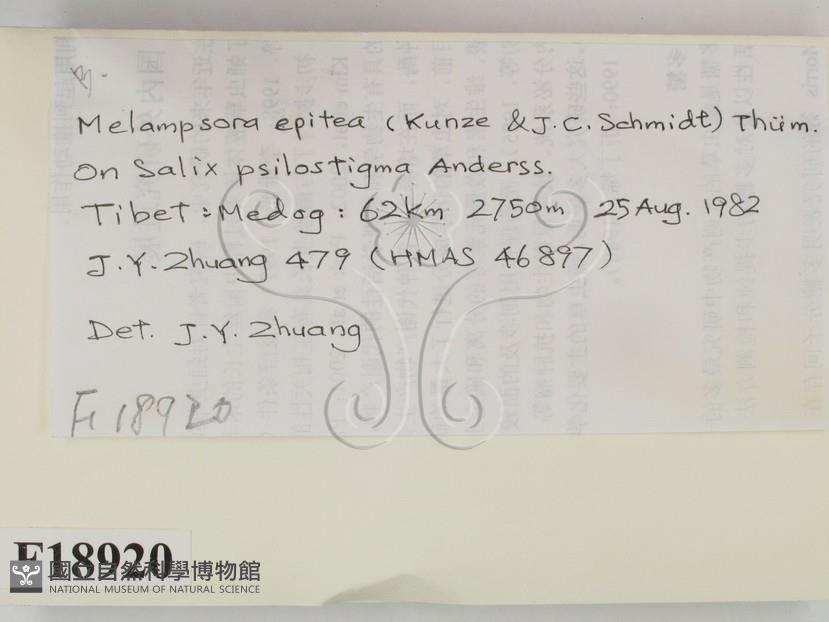 Melampsora epitea (Kunze & J.C. Schmidt) Thüm.
On Salix psilostigma Anderss.
Tibet: Medog: 62km 2750m 25 Aug. 1982
J.Y. Zhuang 479 (HMAS 46897)
Det. J.Y. Zhuang
F18920
F18920
國立自然科學博物館
NATIONAL MUSEUM OF NATURAL SCIENCE